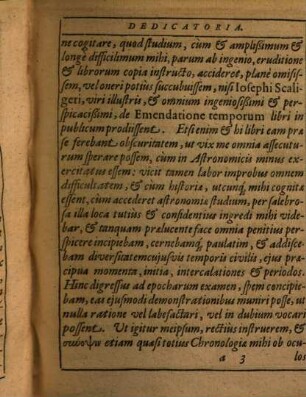 DEDICATORIA.
ne cogitare, quod studium, cum & amplissimum &
longè difficilimum mihi, parum ab ingenio, eruditione
& librorum copia instructo, accideret, planè omisis-
sem, vel oneri potius succubuissem, nisi Iosephi Scali-
geri, viri illustris, & omnium ingeniosissimi & per-
spicacissimi, de Emendatione temporum libri in
publicum prodissent. Etsi enim & hi libri eam præ
se ferebant obscuritatem, ut vix me omnia assecutu-
rum sperare possem, cùm in Astronomicis minus ex-
ercitatus essem: vicit tamen labor improbus omnem
difficultatem, & cum historia, utcunq; mihi cognita
essent, cùm accederet astronomiæ studium, per salebro-
sa illa loca tutius & confidentius ingredi mihi vide-
bar, & tanquam prælucente face omnia penitius per-
spicere incipiebam, cernebamq; paulatim, & addisce-
bam diversitatem cujusvis temporis civilis, ejus præ-
cipua momenta, initia, intercalationes & periodos.
Hinc digressus ad epocharum examen, spem concipie-
bam, eas ejusmodi demonstrationibus muniri posse, ut
nulla ratione vel labefactari, vel in dubium vocari
possent. Ut igitur meipsum, rectius instruerem, &
etiam quasi totius Chronologiæ mihi ob ocu-
a 3 los